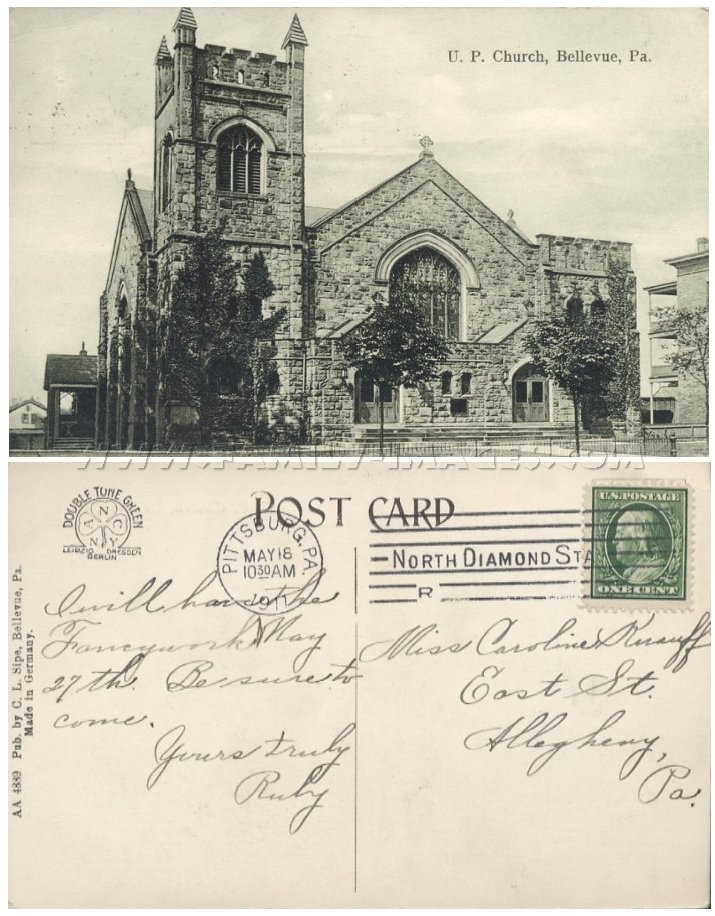 U. P. Church, Bellevue, Pa.
WWW.FAMILY-IMAGES.COM
POST CARD
DOUBLE TONE GREEN
A N C
N Y
LEIPZIG DRESDEN
BERLIN
PITTSBURG, PA.
MAY 18
10 30 AM
1911
NORTH DIAMOND STA
R
U.S. POSTAGE
ONE CENT
I will have the
Fancywork May
27th. Be sure to
come.
Yours truly
Ruby
Miss Caroline Knauff
East St.
Allegheny,
Pa.
AA 4889 Pub. by C. L. Sipe, Bellevue, Pa.
Made in Germany.